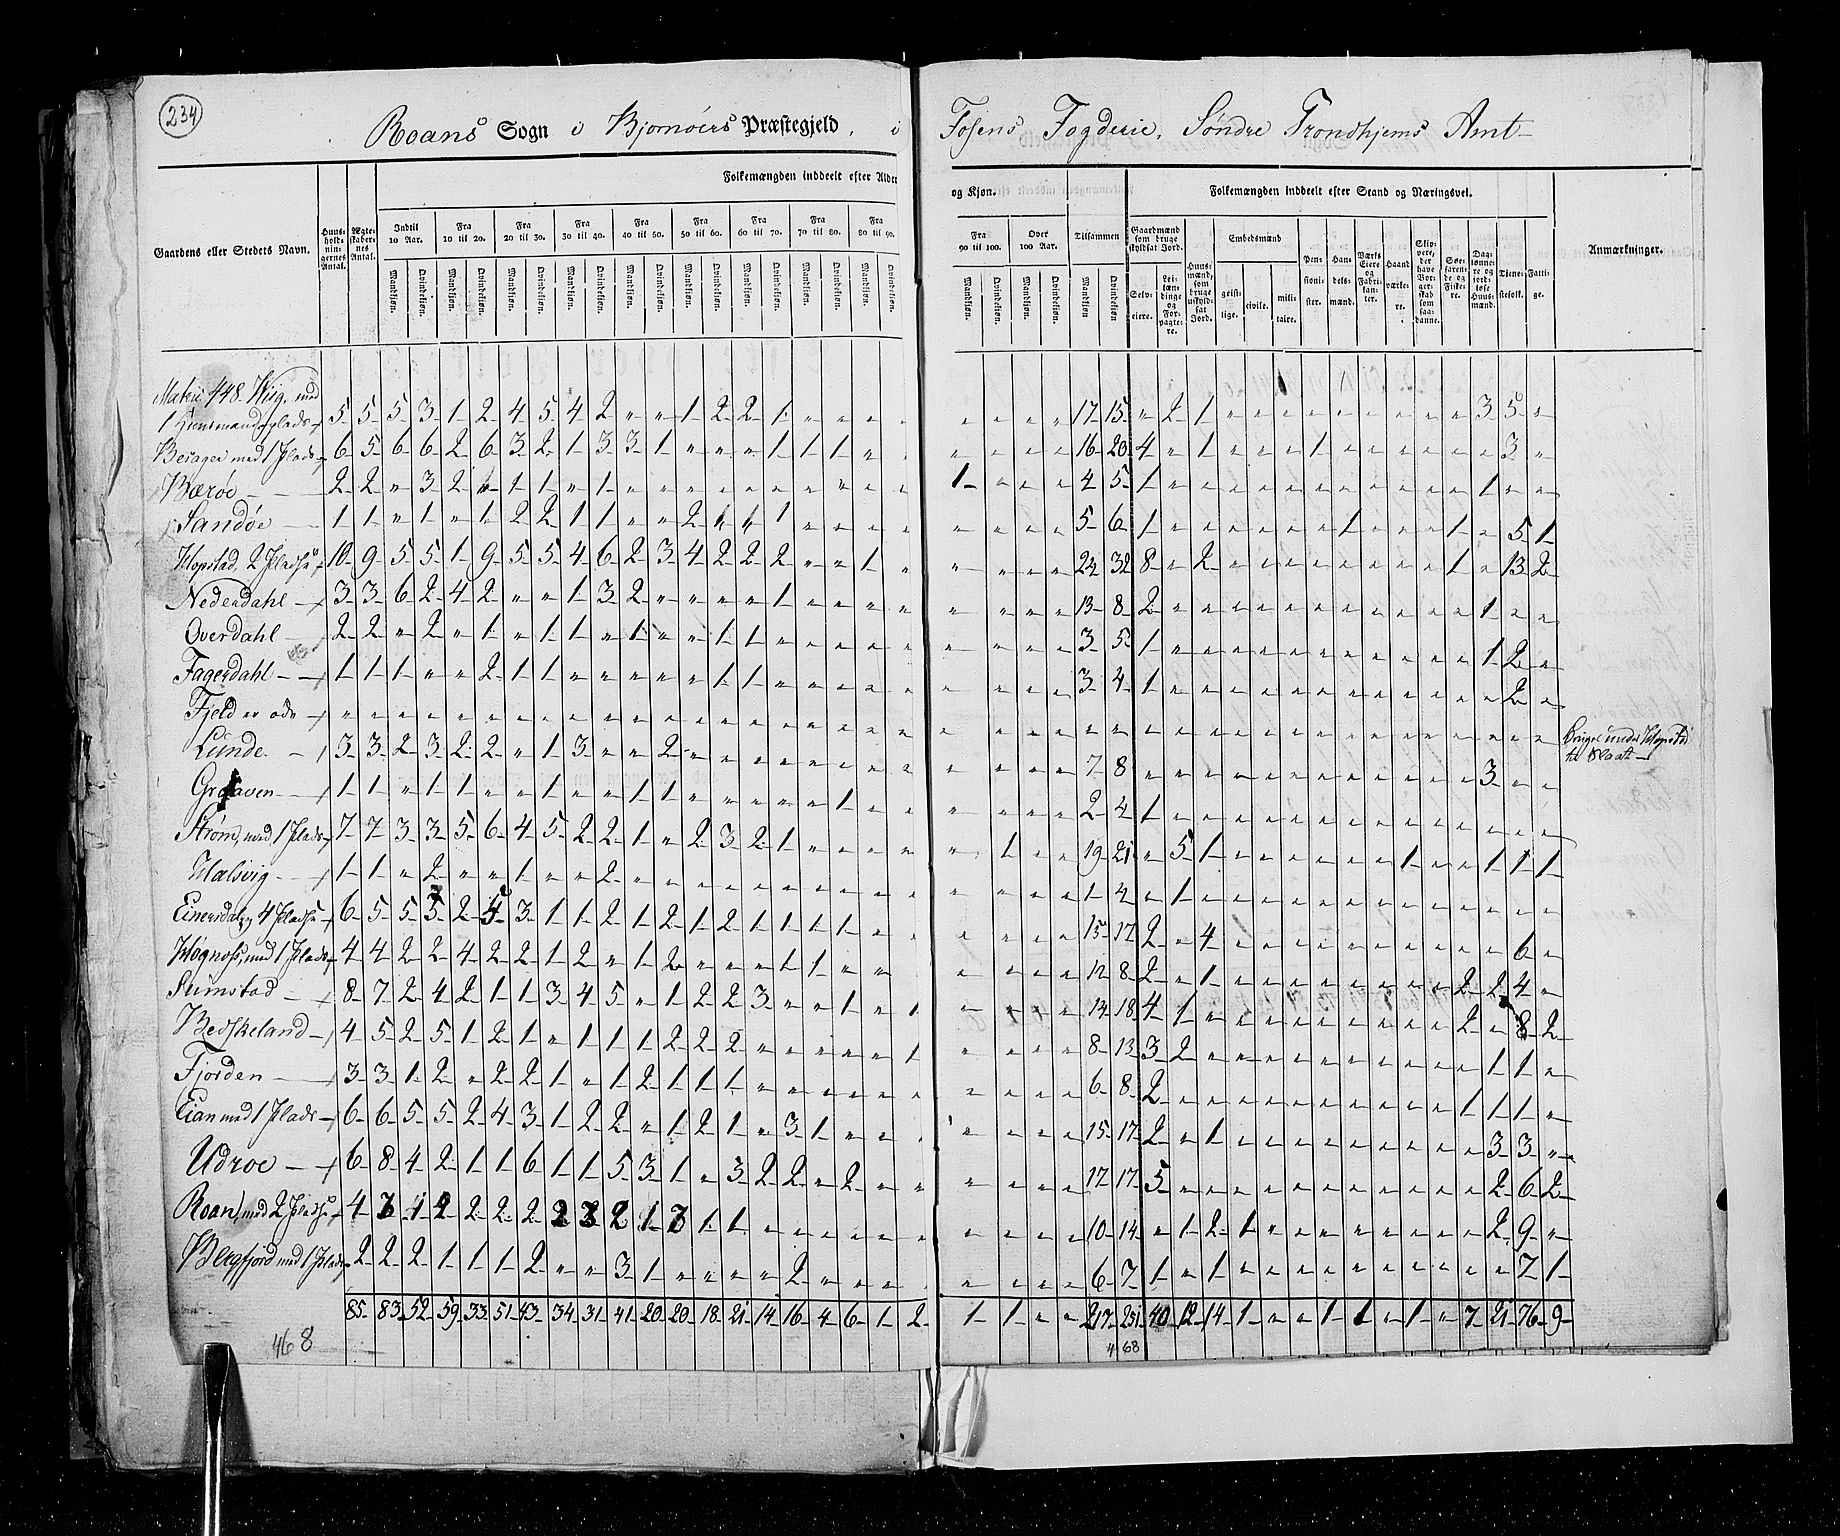 234
Roans Sogn i Bjørnøers Præstegjeld, i Fosens Fogderie, Søndre Trondhjems Amt
Gaardens eller Stedets Navn.
Huus-holdnin-gernes Antal.
Ægte-skaber-nes Antal.
Folkemængden inddeelt efter Alder og Kjøn.
Indtil 10 Aar. Fra 10 til 20. Fra 20 til 30. Fra 30 til 40. Fra 40 til 50. Fra 50 til 60. Fra 60 til 70. Fra 70 til 80. Fra 80 til 90. Fra 90 til 100. Over 100 Aar. Tilsammen
Mandkjøn. Qvindekjøn.
Folkemængden inddeelt efter Stand og Næringsvei.
Gaardmænd som bruge skyldsat Jord.
Selv-eiere. Leilændinge og Forpagtere.
Huusmænd, som bruge uskyldsat Jord.
Embedsmænd
geistlige. civile. militaire.
Pensionister. Handelsmænd. Værks Eiere og Fabrikanter. Haandværkere. Skippere, der have Borgerskab som saadanne. Søefarende og Fiskere. Dagslønnere og jordløse Huusmænd. Tjenestefolk. Fattige.
Anmærkninger.
1 Huusmandsplads 5 5 5 3 1 2 4 5 4 2 " " 1 2 2 1 " " " " 17 15 " 2 1 " " " " " " " " " 3 5 "
Besager med 1 Plads 6 5 6 6 2 6 3 2 1 3 3 1 " " " 1 1 1 " " 16 20 4 " 1 " " " 1 " " " " " " 3 "
Bærøe 2 2 " 3 2 " 1 1 " 1 " " " " " " " " " " 1 " " " 4 5 1 " " " " " " " " " " " 1 " "
Sandøe 1 1 " 1 " 1 2 2 1 1 " " 2 " " 1 " " " " 5 6 1 " " " " " " 1 " " " 1 " 5 1
Hopstad, 2 Pladse 10 9 5 5 1 9 5 5 4 6 2 3 4 2 2 2 " " 1 " 24 32 8 " 2 " " " " " " " " 1 " 13 2
Nederdahl 3 3 6 2 4 2 " " 1 3 2 " " " " 1 " " " " 13 8 2 " " " " " " " " " " " 1 " "
Overdahl 2 2 " 2 " 1 " 1 1 " 1 " " 1 1 " " " " " 3 5 1 " " " " " " " " " " " 1 2 "
Fagerdahl 1 1 1 " " 2 1 1 " " " " " 1 1 " " " " " 3 4 1 " " " " " " " " " " " " 2 "
Fjeld er øde " " " " " " " " " " " " " " " " " " " "
Lunde 3 3 2 3 2 2 " 1 3 " " 2 " " " " " " " " 7 8 " " " " " " " " " " " " 3 " "
Graaven 1 1 " 1 1 " " 1 " 1 1 " " " " " 1 " " 2 4 1
Strøm, med 1 Plads 7 7 3 3 5 6 4 5 2 2 1 " 2 3 2 1 " " " " " 1 " " 19 21 " 5 1 " " " " " " 1 " " 1 1 1
Halsvig 1 1 " 2 " " 1 " " 2 " " " " " " " " " " 1 4 " 1
Einersdal, 4 Pladse 6 5 5 3 2 5 3 1 1 2 1 2 1 2 1 1 1 1 " " 15 17 2 " 4 " " " " " " " " " " 6 "
Høgnæs, med 1 Plads 4 4 2 2 4 2 2 1 2 " 1 2 " " " 1 1 " " 12 8 2 " 1 " " " " " " " " 2 2 4 "
Sumstad 8 7 2 4 2 1 1 3 4 5 " 1 2 2 3 " " 1 " 1 14 18 4 1 " " " " " " " " " 2 " 8 2
Beskeland 4 5 2 5 1 2 1 " 1 1 1 2 2 2 " " " " " 1 8 13 3 2 " " " " " " " " " " 1 1 "
Fjorden 3 3 1 2 " 2 2 1 " 1 2 1 1 1 " " " " " " 6 8 2 " " " " " " " " " " 1 1 1 "
Eian med 1 Plads 6 6 5 5 2 4 3 1 2 2 " 1 2 1 " 3 1 " " " 15 17 2 " 1 " " " " " " " " " 3 3 "
Udroe 6 8 4 2 1 1 6 1 1 5 3 1 " 3 2 2 " 2 " " 17 17 5 " " " " " " " " " " " 2 6 2
Roan, med 2 Pladse 4 3 1 2 2 2 2 2 3 2 1 3 1 1 " " " " " " 10 14 " 1 2 1 " " " " " " " " 2 9 "
Bergfjord med 1 Plads 2 2 2 1 1 1 2 " " 3 1 " " " " 2 " " " " 6 7 1 " 1 " " " " " " " " " " 7 1
85 83 52 59 33 51 43 34 31 41 20 20 18 21 14 16 4 6 1 2 1 1 " " 217 251 40 12 14 1 " " 1 1 " 1 " 7 21 76 9
468
468